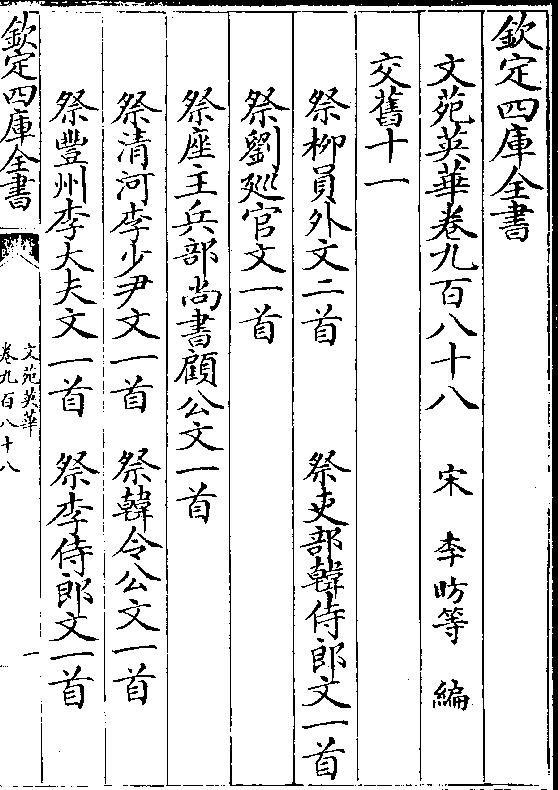 欽定四庫全書
文苑英華卷九百八十八 宋 李昉等 編
交舊十一
祭柳員外文二首 祭吏部韓侍郎文一首
祭劉廵官文一首
祭座主兵部尚書顧公文一首
祭清河李少尹文一首 祭韓令公文一首
祭豐州李大夫文一首 祭李侍郎文一首
欽定四庫全書
文苑英華
卷九百八十八
一